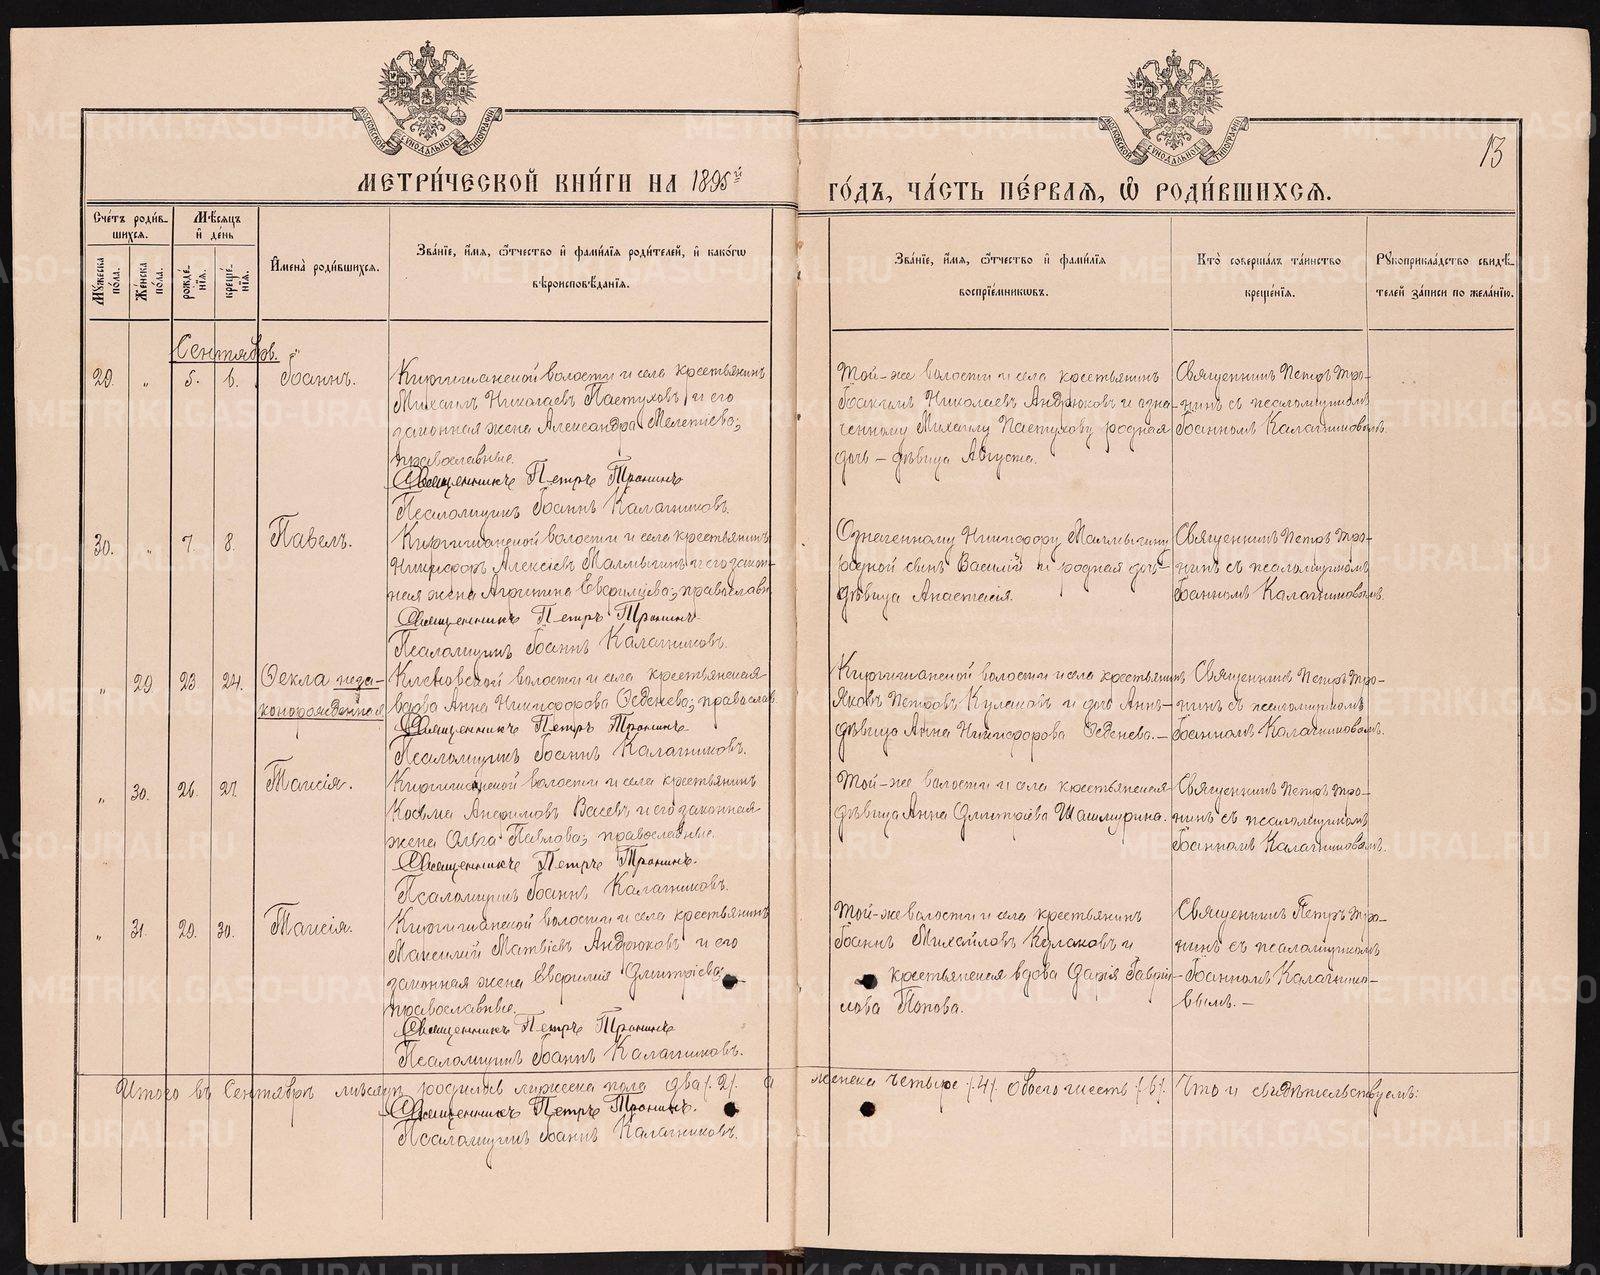 МОСКОВСКОЙ СѴНОДАЛЬНОЙ ТИПОГРАФІИ
МОСКОВСКОЙ СѴНОДАЛЬНОЙ ТИПОГРАФІИ
13
МЕТРИ́ЧЕСКОЙ КНИ́ГИ НА 1895й
ГО́ДЪ, ЧА́СТЬ ПЕ́РВАЯ, Ѽ РОДИ́ВШИХСЯ.
Сче́тъ роди́в-
шихся.
Мꙋ́жеска по́ла.
Же́нска по́ла.
Мѣ́сяцъ
и҆ де́нь
рожде́нїѧ.
креще́нїѧ.
И҆мена̀ роди́вшихсѧ.
Зва́нїе, и҆́мѧ, ѻ҆́тчество и҆ фами́лїѧ роди́телей, и҆ како́гѡ
вѣроисповѣ́данїѧ.
Зва́нїе, и҆́мѧ, ѻ҆́тчество и҆ фами́лїѧ
воспрїе́мникѡвъ.
Кто̀ соверша́лъ та́инство
креще́нїѧ.
Рꙋкоприкла́дство свидѣ́-
телей за́писи по жела́нїю.
Сентябрь.
29. „ 5. 6. Іоаннъ.
Киргишанской волости и села крестьянинъ
Михаилъ Николаевъ Пастуховъ и его
законная жена Александра Мелетіева;
православные.
Священникъ Петръ Тронинъ
Псаломщикъ Іоаннъ Калашниковъ.
Той-же волости и села крестьянинъ
Іоакимъ Николаевъ Андрюковъ и озна-
ченному Михаилу Пастухову родная
дочь – дѣвица Августа.
Священникъ Петръ Тро-
нинъ съ псаломщикомъ
Іоанномъ Калашниковымъ.
30. „ 7. 8. Павелъ.
Киргишанской волости и села крестьянинъ
Никифоръ Алексіевъ Малмыгинъ и его закон-
ная жена Агрипина; православн
Священникъ Петръ Тронинъ
Псаломщикъ Іоаннъ Калашниковъ.
Означенному Никифору Малмыгину
родной сынъ Василій и родная дочь
дѣвица Анастасія.
Священникъ Петръ Тро-
нинъ съ псаломщикомъ
Іоанномъ Калашниковымъ.
„ 29. 23. 24. Ѳекла неза-
коннорожденная
Кленовской волости и села крестьянская
вдова Анна Никифорова Ѳеденева; православ
Священникъ Петръ Тронинъ
Псаломщикъ Іоаннъ Калашниковъ.
Киргишанской волости и села крестьянинъ
Яковъ Петровъ Кулаковъ и
дѣвица Анна Никифорова Ѳеденева. –
Священникъ Петръ Тро-
нинъ съ псаломщикомъ
Іоанномъ Калашниковымъ.
„ 30. 26. 27. Таисія.
Киргишанской волости и села крестьянинъ
Косьма Анфимовъ Васевъ и его законная
жена Ольга Павлова; православные.
Священникъ Петръ Тронинъ.
Псаломщикъ Іоаннъ Калашниковъ.
Той-же волости и села крестьянская
дѣвица Анна Дмитріева Шашмурина.
Священникъ Петръ Тро-
нинъ съ псаломщикомъ
Іоанномъ Калашниковымъ.
„ 31. 29. 30. Таисія.
Киргишанской волости и села крестьянинъ
Максимъ Матвіевъ Андрюковъ и его
законная жена Дмитріева;
православные.
Священникъ Петръ Тронинъ
Псаломщикъ Іоаннъ Калашниковъ.
Той-же волости и села крестьянинъ
Іоаннъ Михайловъ Кулаковъ и
крестьянская вдова Дарія Гаврии-
лова Попова.
Священникъ Петръ Тро-
нинъ съ псаломщикомъ
Іоанномъ Калашнико-
вымъ. –
Итого въ Сентябрѣ мѣсяцѣ родилось мужеска пола два /2/. а женска четыре /4/. обоего шесть /6/. Что и свидѣтельствуемъ:
Священникъ Петръ Тронинъ.
Псаломщикъ Іоаннъ Калашниковъ.
METRIKI.GASO-URAL.RU